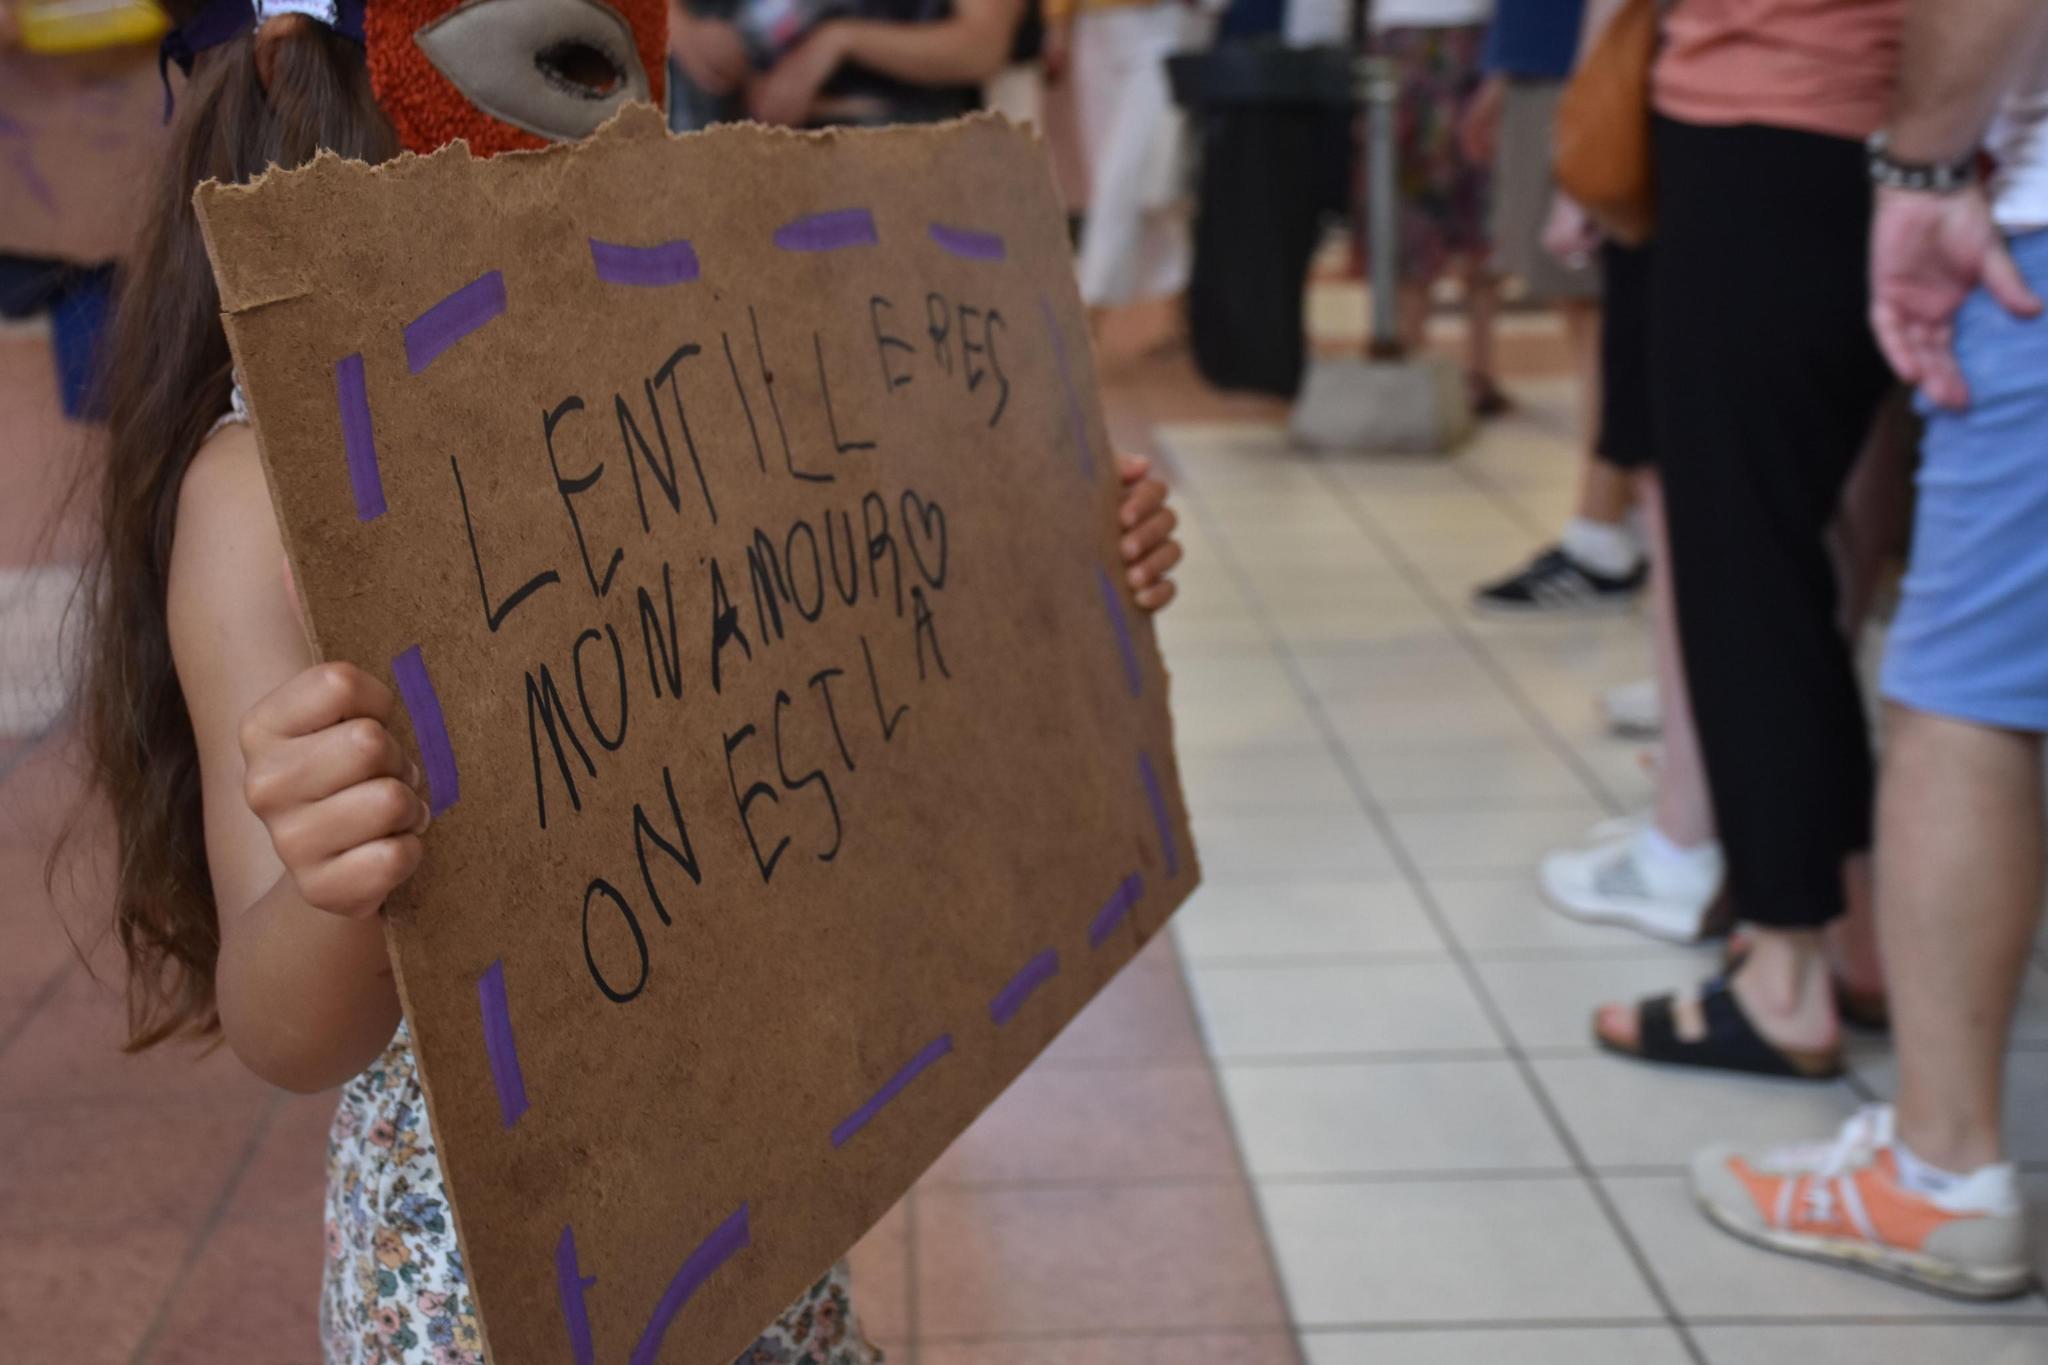 LENTILLERES
MON AMOUR♡
ON EST LA